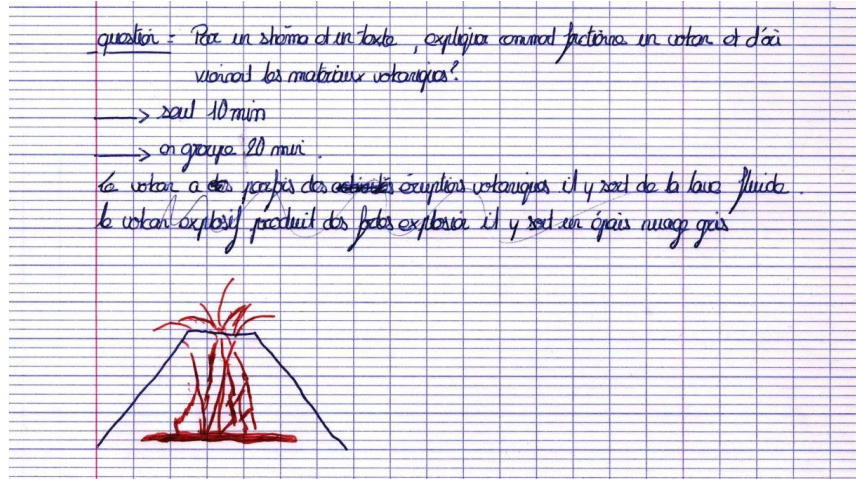 question = Par un shéma et un texte, expliquer comment fonctionne un volcan et d'où
viennent les matériaux volcaniques?
→ seul 10 min
→ en groupe 20 min.
Le volcan a des parfois des éruptions volcaniques il y sort de la lave fluide.
le volcan explosif produit des fortes explosion il y sort un épais nuage gris